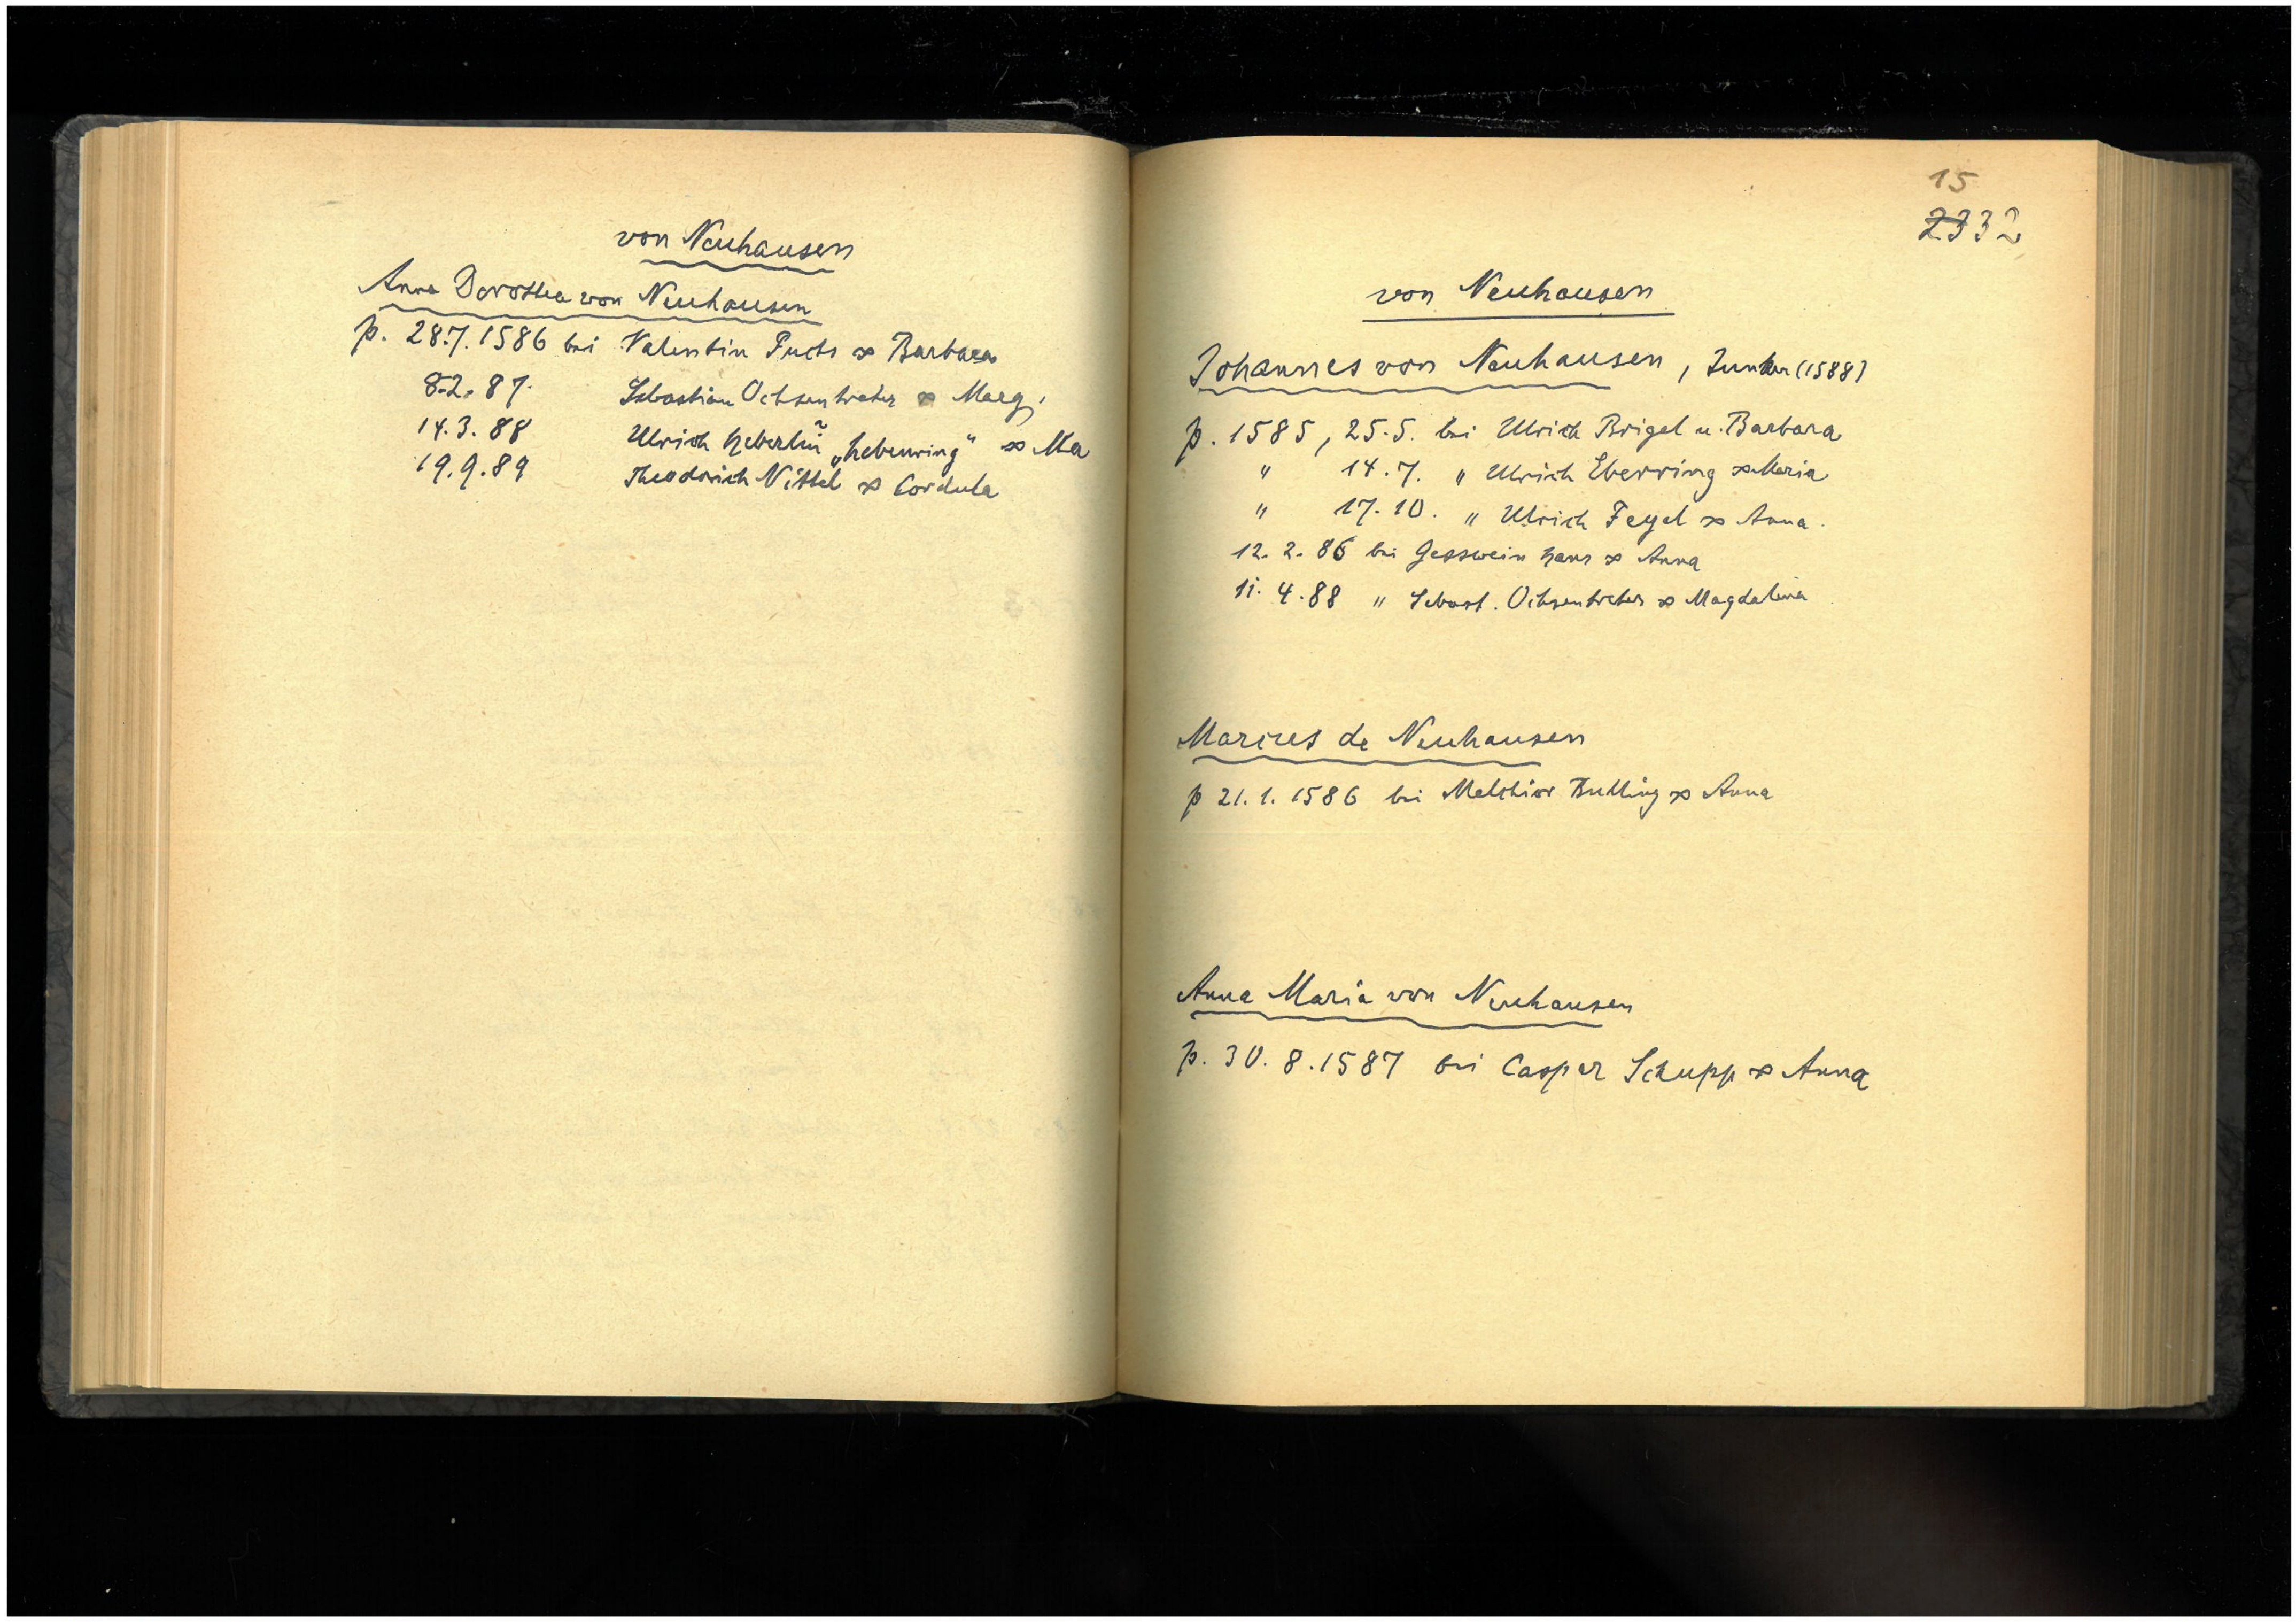 von Neuhausen
Anna Dorothea von Neuhausen
p. 28.7.1586 bei Valentin Fuchs ∞ Barbara
8.2.87. Sebastian Ochsentreter ∞ Marg.
14.3.88 Ulrich Heberlin „Hebenring" ∞ Ma
19.9.89 Theodrich Nittel ∞ Cordula
15
23 32
von Neuhausen
Johannes von Neuhausen, Junker (1588)
p. 1585, 25.5. bei Ulrich Brigel u. Barbara
" 14.7. " Ulrich Eberring ∞ Maria
" 17.10. " Ulrich Feyel ∞ Anna.
12.2.86 bei Gesswein Hans ∞ Anna
11.4.88 " Sebast. Ochsentreter ∞ Magdalena
Marcus de Neuhausen
p 21.1.1586 bei Melchior Bulling ∞ Anna
Anna Maria von Neuhausen
p. 30.8.1587 bei Casper Schupp ∞ Anna